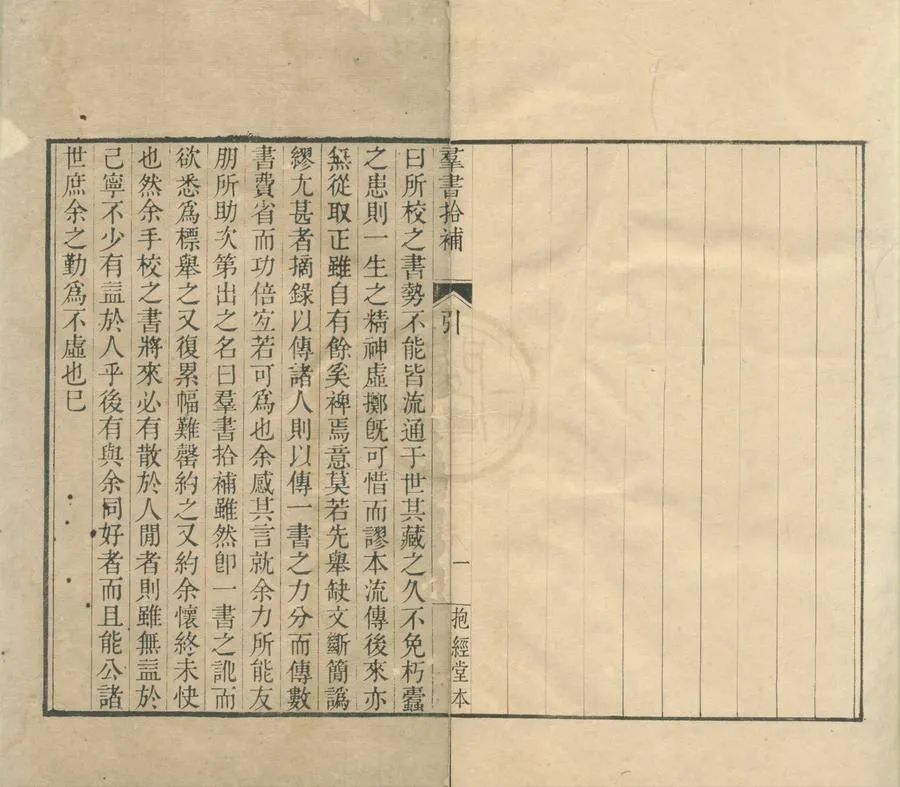 羣書拾補
引
一
抱經堂本
曰所校之書勢不能皆流通于世其藏之久不免朽蠹
之患則一生之精神虛擲旣可惜而謬本流傳後來亦
無從取正雖自有餘奚裨焉意莫若先舉缺文斷簡譌
繆尤甚者摘錄以傳諸人則以傳一書之力分而傳數
書費省而功倍宐若可爲也余感其言就余力所能友
朋所助次第出之名曰羣書拾補雖然卽一書之訛而
欲悉爲標舉之又復累幅難罄約之又約余懷終未快
也然余手校之書將來必有散於人閒者則雖無益於
己寧不少有益於人乎後有與余同好者而且能公諸
世庶余之勤爲不虛也巳